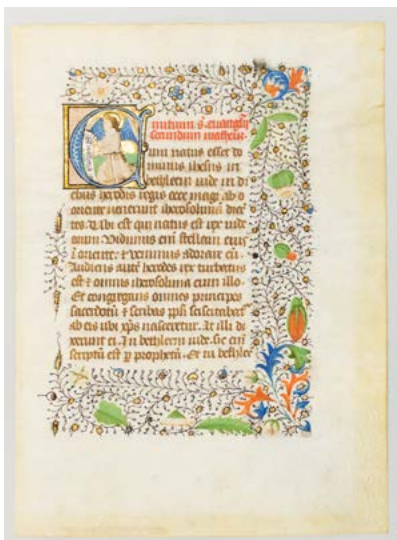 Initium s. euangelij
secundum matheum.
Cum natus esset do
minus ihesus in
bethleem iude in di
ebus herodis regis ecce magi ab o
riente uenerunt iherosolimā dicē
tes. Ubi est qui natus est rex iude
orum. Vidimus em̄ stellam eius
ī oriente. ⁊ venimus adorare eū.
Audiens autē herodes rex turbatus
est ⁊ omnis iherosolima cum illo.
Et congregans omnes principes
sacerdotū ⁊ scribas ppl̄i sciscitabat̄
ab eis ubi xp̄s nasceretur. At illi di
xerunt ei. In bethleem iude. Sic em̄
scriptū est p prophetā. Et tu bethlee